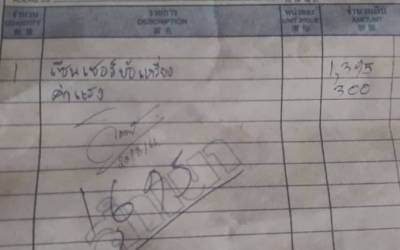 จำนวน รายการ หน่วยละ จำนวนเงิน
QUANTITY DESCRIPTION UNIT PRICE AMOUNT
數量 品名 單位 金額
1 เซ็นเซอร์ข้อเหวี่ยง 1,395
ค่าแรง 300
1695